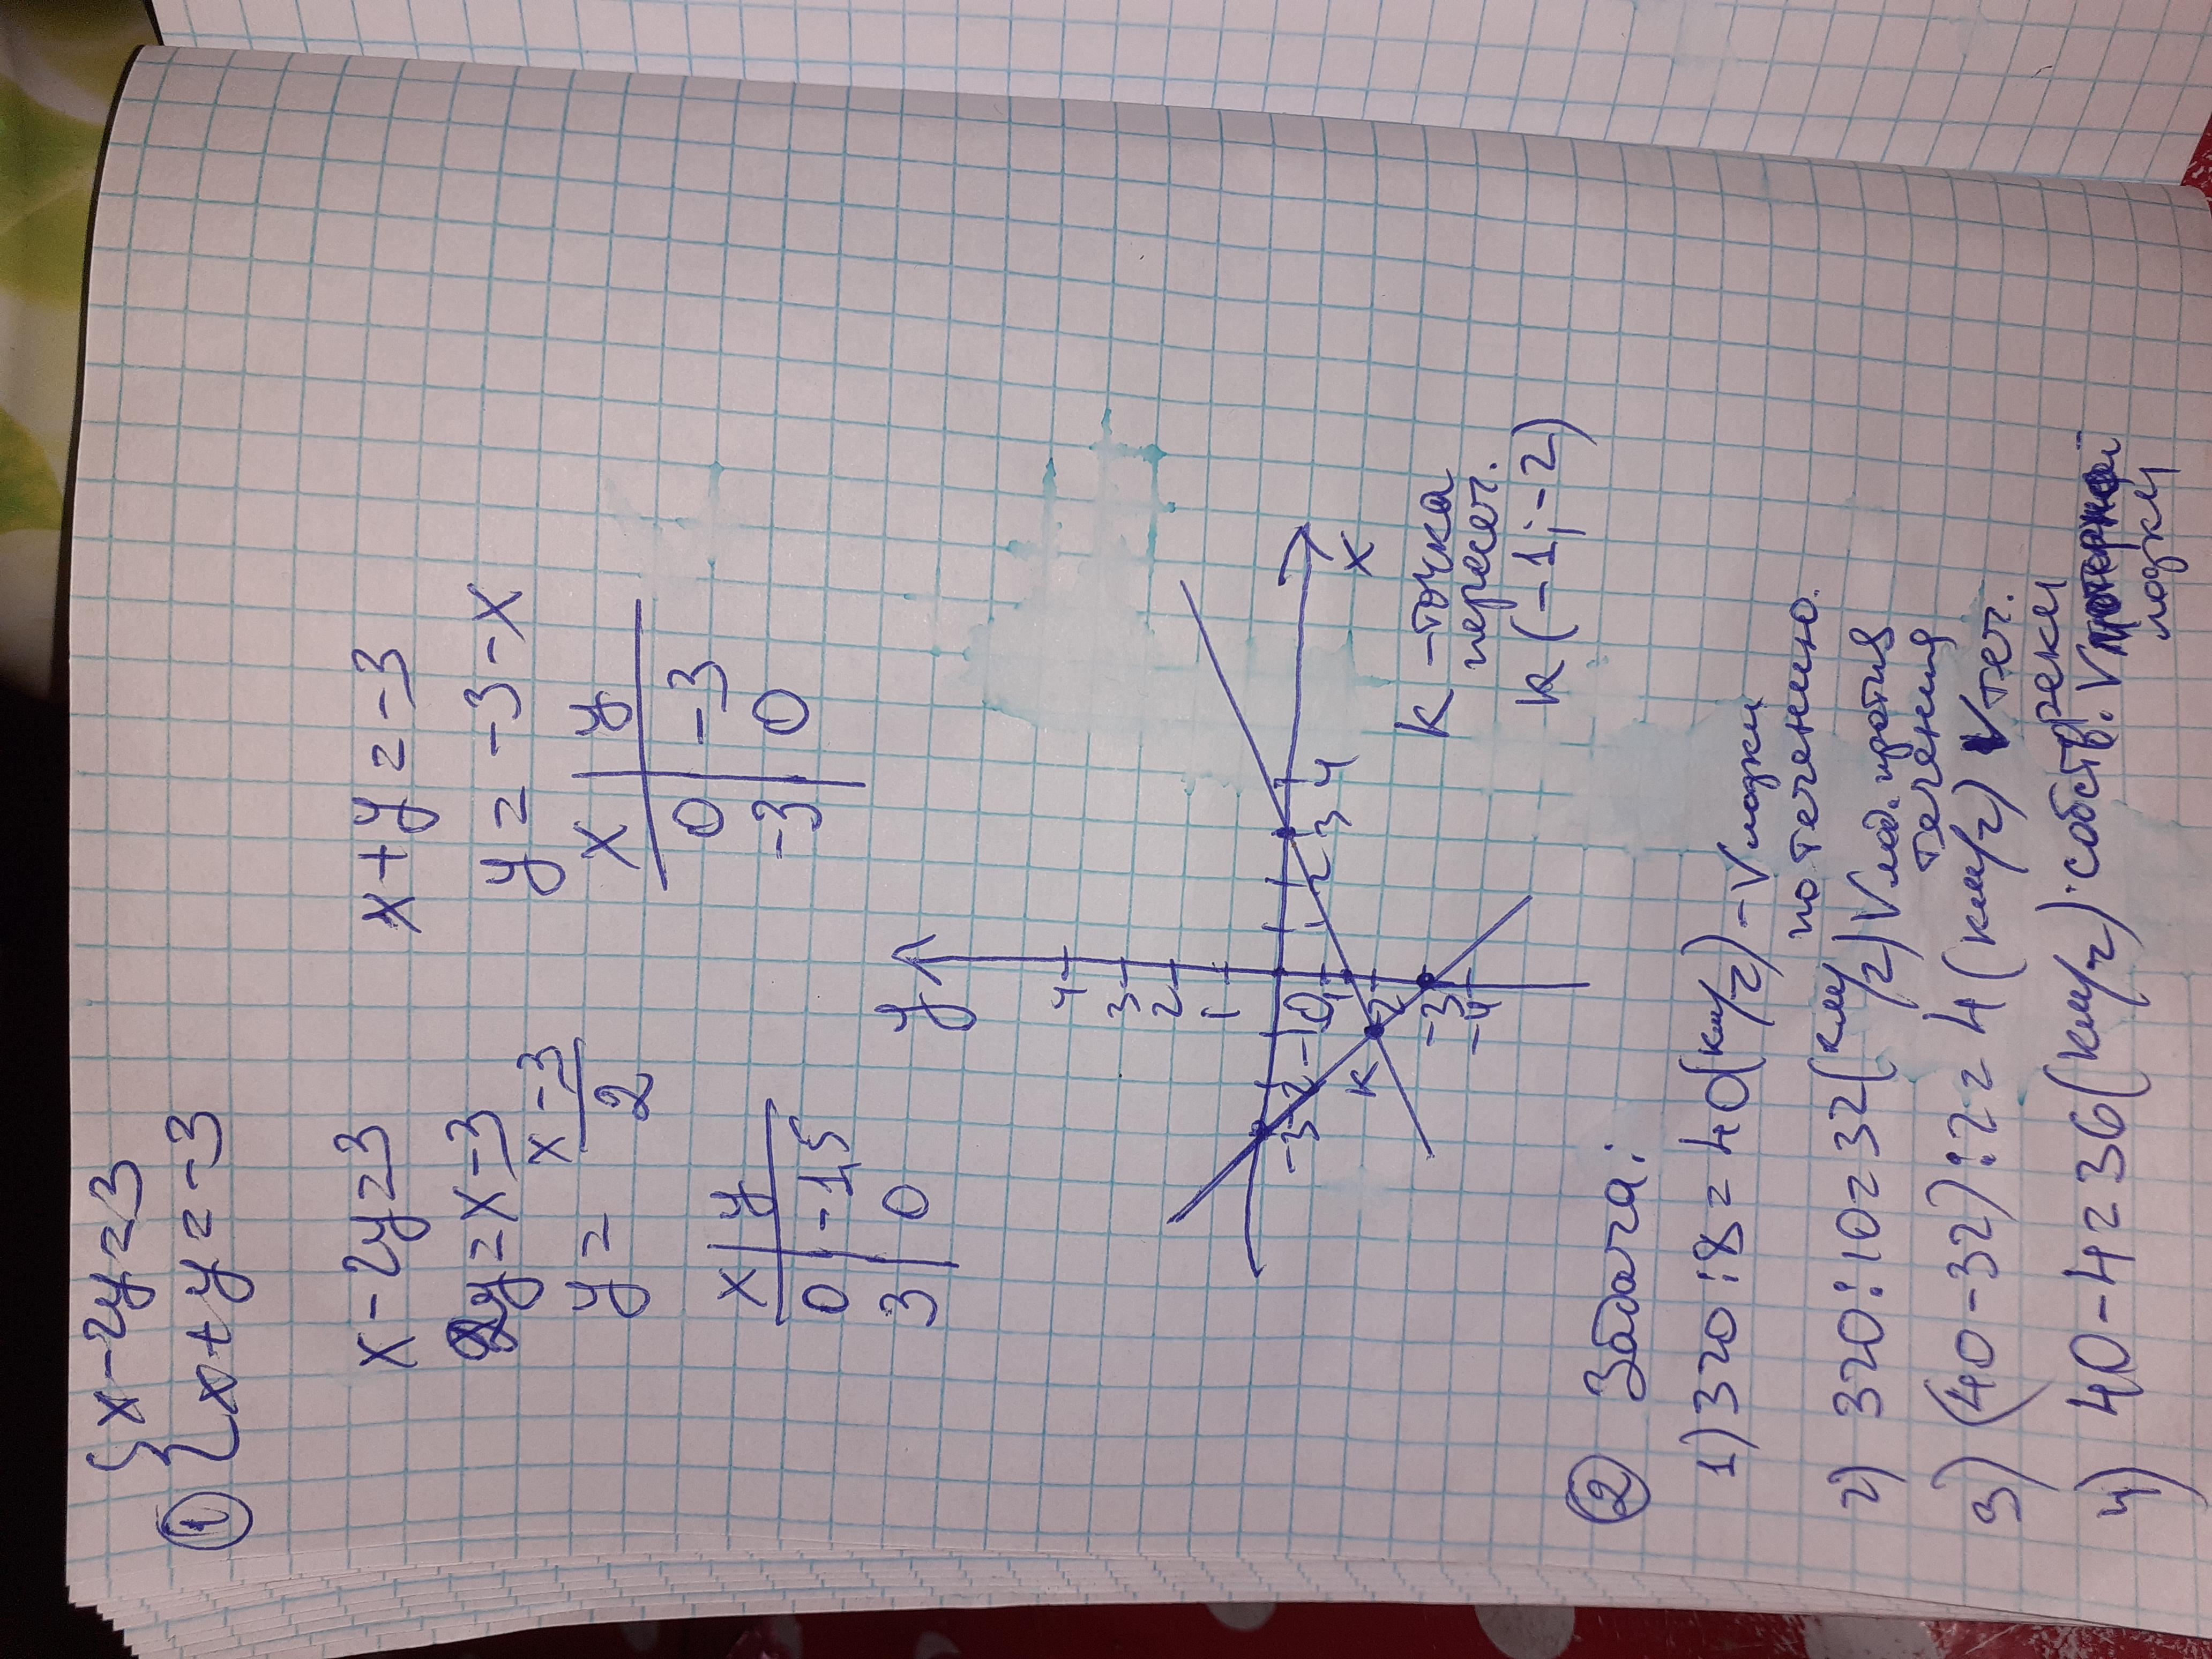 ① { x - 2y = 3
x + y = -3
x - 2y = 3
x + y = -3
2y = x - 3
y = -3 - x
y = x - 3 / 2
x | y
0 | -3
-3 | 0
x | y
0 | -1,5
3 | 0
y
4
3
2
1
-3 -2 -1 0 1 2 3 4 x
-1
-2
-3
-4
K
K - точка
пересеч.
K (-1; -2)
② Задача:
1) 320 : 8 = 40 (км/ч) - V лодки
по течению.
2) 320 : 10 = 32 (км/ч) V лод. против
течения
3) (40 - 32) : 2 = 4 (км/ч) V теч.
реки
4) 40 - 4 = 36 (км/ч) · собств. V
лодки